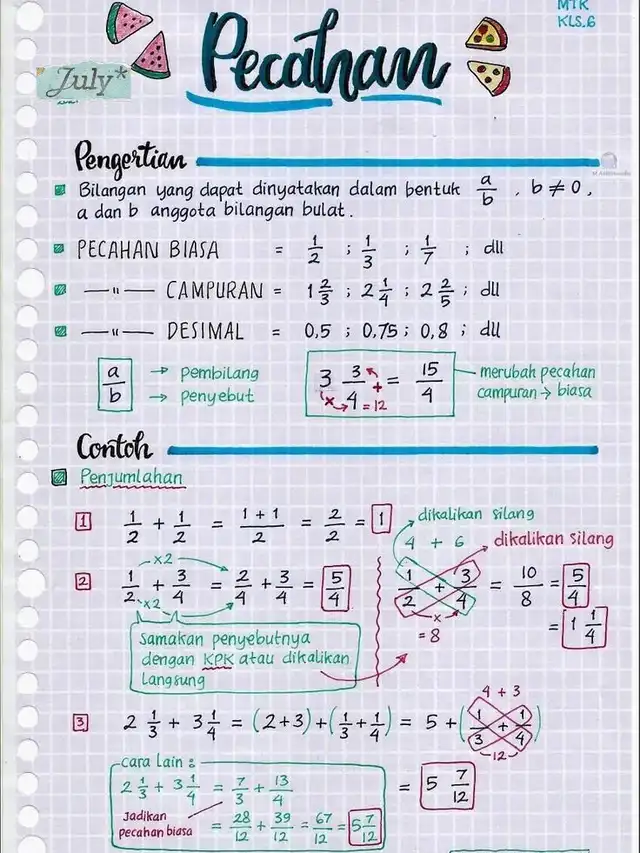 MTK
KLS.6
July*
Pecahan
Pengertian
Bilangan yang dapat dinyatakan dalam bentuk a/b , b ≠ 0,
a dan b anggota bilangan bulat.
PECAHAN BIASA = 1/2 ; 1/3 ; 1/7 ; dll
—〃— CAMPURAN = 1 2/3 ; 2 1/4 ; 2 2/5 ; dll
—〃— DESIMAL = 0,5 ; 0,75 ; 0,8 ; dll
a/b → pembilang
→ penyebut
3 3/4 = 15/4
x + = 12
merubah pecahan
campuran → biasa
Contoh
Penjumlahan
1 1/2 + 1/2 = (1+1)/2 = 2/2 = 1
2 1/2 + 3/4 = 2/4 + 3/4 = 5/4
x2
x2
samakan penyebutnya
dengan KPK atau dikalikan
langsung
dikalikan silang
4 + 6
dikalikan silang
1/2 + 3/4 = 10/8 = 5/4
x
= 8
= 1 1/4
3 2 1/3 + 3 1/4 = (2+3) + (1/3 + 1/4) = 5 + (1/3 + 1/4)
4 + 3
12
= 5 7/12
cara lain :
2 1/3 + 3 1/4 = 7/3 + 13/4
Jadikan
pecahan biasa
= 28/12 + 39/12 = 67/12 = 5 7/12